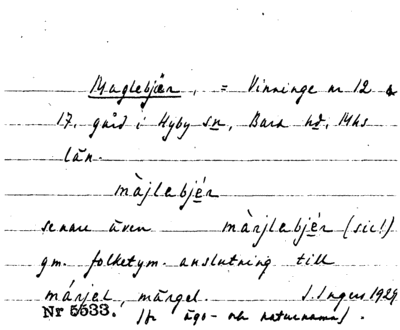 Maglebjär, = Vinninge nr 12 &
17. gård i Hyby sn, Bara hd, Mhs
län.
màjlebjér
senare även màrjlebjér (sic!)
gm. folketym. anslutning till
márjel, märgel. I. Ingers 1929
Nr 5533. Jfr ägo- och naturnamn.